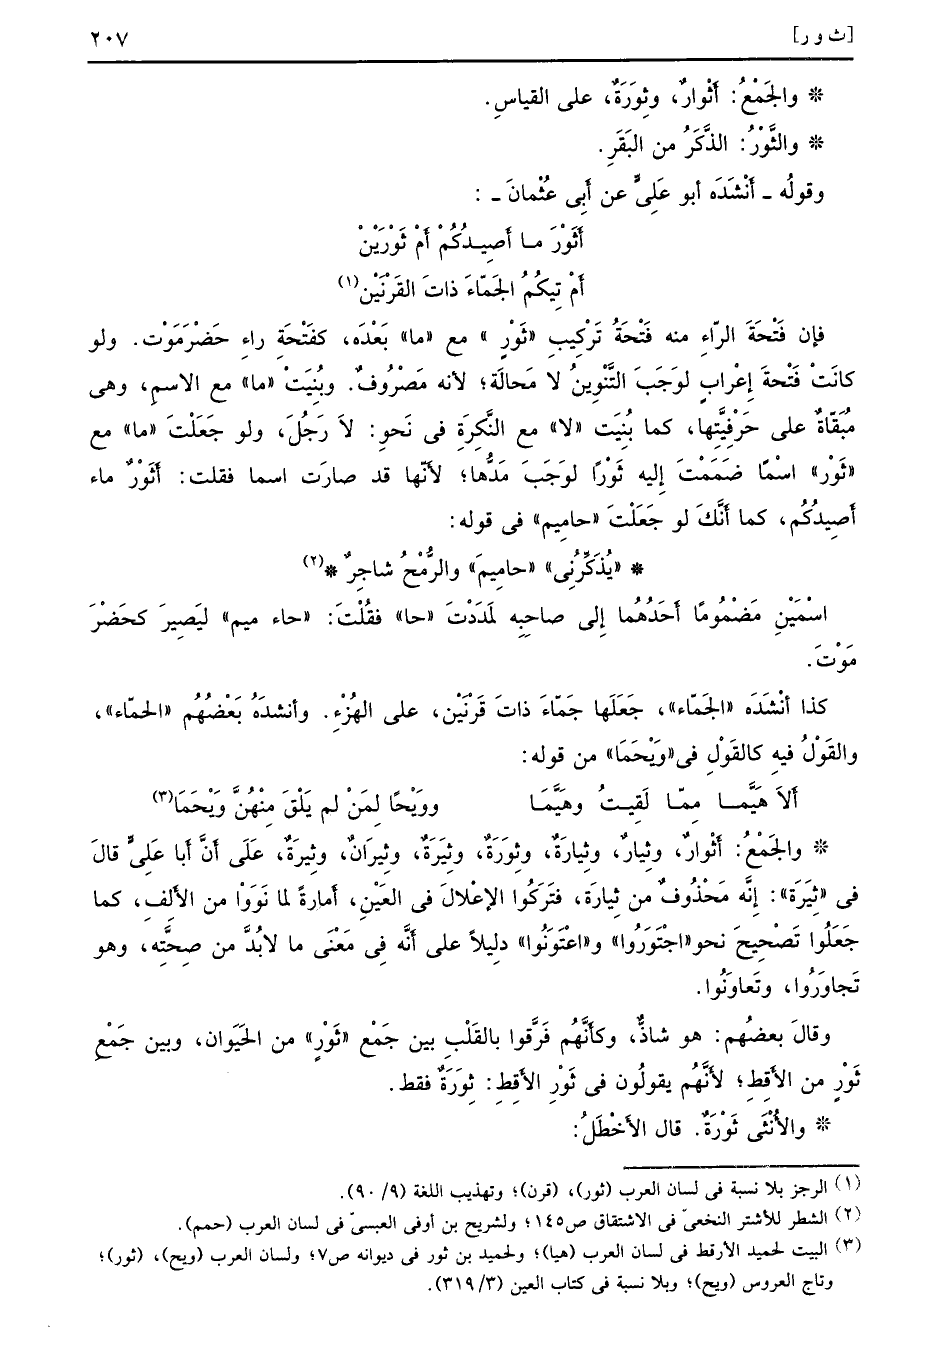 [ث و ر] ٢٠٧
* والجَمْعُ: أَثْوارٌ، وثِورَةٌ، على القياسِ.
* والثَّوْرُ: الذَّكَرُ من البَقَرِ.
وقولُه ـ أَنْشَدَه أبو عَلىٍّ عن أَبِى عُثْمانَ ـ :
أَثَوْرَ مـا أَصِيـدُكُمْ أَمْ ثَوْرَيْنْ
أَمْ تِيكُمُ الجَمّاءَ ذاتَ القَرْنَيْن(١)
فإن فَتْحَةَ الرّاءِ منه فَتْحَةُ تَرْكِيبِ «ثَوْرٍ » مع «ما» بَعْدَه، كفَتْحَةِ راءِ حَضْرَمَوْت. ولو
كانَتْ فَتْحةَ إعْرابٍ لوَجَبَ التَّنْوينُ لا مَحالَة؛ لأنه مَصْروُفٌ. وبُنِيَتْ «ما» مع الاسمِ، وهى
مُبَقّاةٌ على حَرْفِيَّتِها، كما بُنِيَت «لا» مع النَّكِرَةِ فى نَحوِ: لاَ رَجُلَ، ولو جَعَلْتَ «ما» مع
«ثَوْر» اسْمًا ضَمَمْتَ إليه ثَوْرًا لوَجَبَ مَدُّها؛ لأنّها قد صارَت اسما فقلت: أَثَوْرٌ ماء
أَصِيدُكُم، كما أَنَّكَ لو جَعَلْتَ «حاميم» فى قوله:
* «يُذَكِّرُنِى» «حامِيمَ» والرُّمْحُ شاجِرٌ *(٢)
اسْمَيْنِ مَضْمُومًا أَحَدُهُما إلى صاحِبِه لمَدَدْتَ «حا» فقُلْتَ: «حاء ميم» ليَصِيرَ كحَضْرَ
مَوْتَ.
كذا أنْشَدَه «الجَمّاء»، جَعَلَها جَمّاءَ ذاتَ قَرْنَيْنِ، على الهُزْءِ. وأنشدَهُ بَعْضُهُم «الحمّاء»،
والقَوْلُ فيهِ كالقَوْلِ فى«وَيْحَمَا» من قوله:
أَلاَ هَيَّمـا ممّـا لَقِيـتُ وهَيَّمَـا وويْحًا لمَنْ لم يَلْقَ مِنْهُنَّ وَيْحَمَا(٣)
* والجَمْعُ: أَثْوارٌ، وثِيارٌ، وثِيارَةٌ، وثِورَةٌ، وثِيَرَةٌ، وثِيرَانٌ، وثِيرَةٌ، عَلَى أَنَّ أبا عَلِىٍّ قالَ
فى «ثِيَرَة»: إنَّه مَحْذُوفٌ من ثِيارَة، فتَرَكُوا الإعْلالَ فى العَيْنِ، أمارةً لما نَوَوْا من الألفِ، كما
جَعَلُوا تَصْحِيحَ نحو«اجتَوَرُوا» و«اعتَوَنُوا» دليلاً على أنَّه فى مَعْنَى ما لابُدَّ من صحتَّه، وهو
تَجاوَرُوا، وتَعاوَنُوا.
وقالَ بعضُهم: هو شاذٌّ، وكأنَّهُم فَرَّقوا بالقَلْبِ بين جَمْعِ «ثَوْرٍ» من الحَيَوان، وبين جَمْعِ
ثَوْرٍ من الأقطِ؛ لأنَّهُم يقولُون فى ثَوْرِ الأَقِطِ: ثِوَرَةٌ فقط.
* والأُنْثَى ثَوْرَةٌ. قال الأخْطَلُ:
(١) الرجز بلا نسبة فى لسان العرب (ثور)، (قرن)؛ وتهذيب اللغة (٩/ ٩٠).
(٢) الشطر للأشتر النخعىّ فى الاشتقاق ص١٤٥؛ ولشريح بن أوفى العبسىّ فى لسان العرب (حمم).
(٣) البيت لحميد الأرقط فى لسان العرب (هيا)؛ ولحميد بن ثور فى ديوانه ص٧؛ ولسان العرب (ويح)، (ثور)؛
وتاج العروس (ويح)؛ وبلا نسبة فى كتاب العين (٣/ ٣١٩).